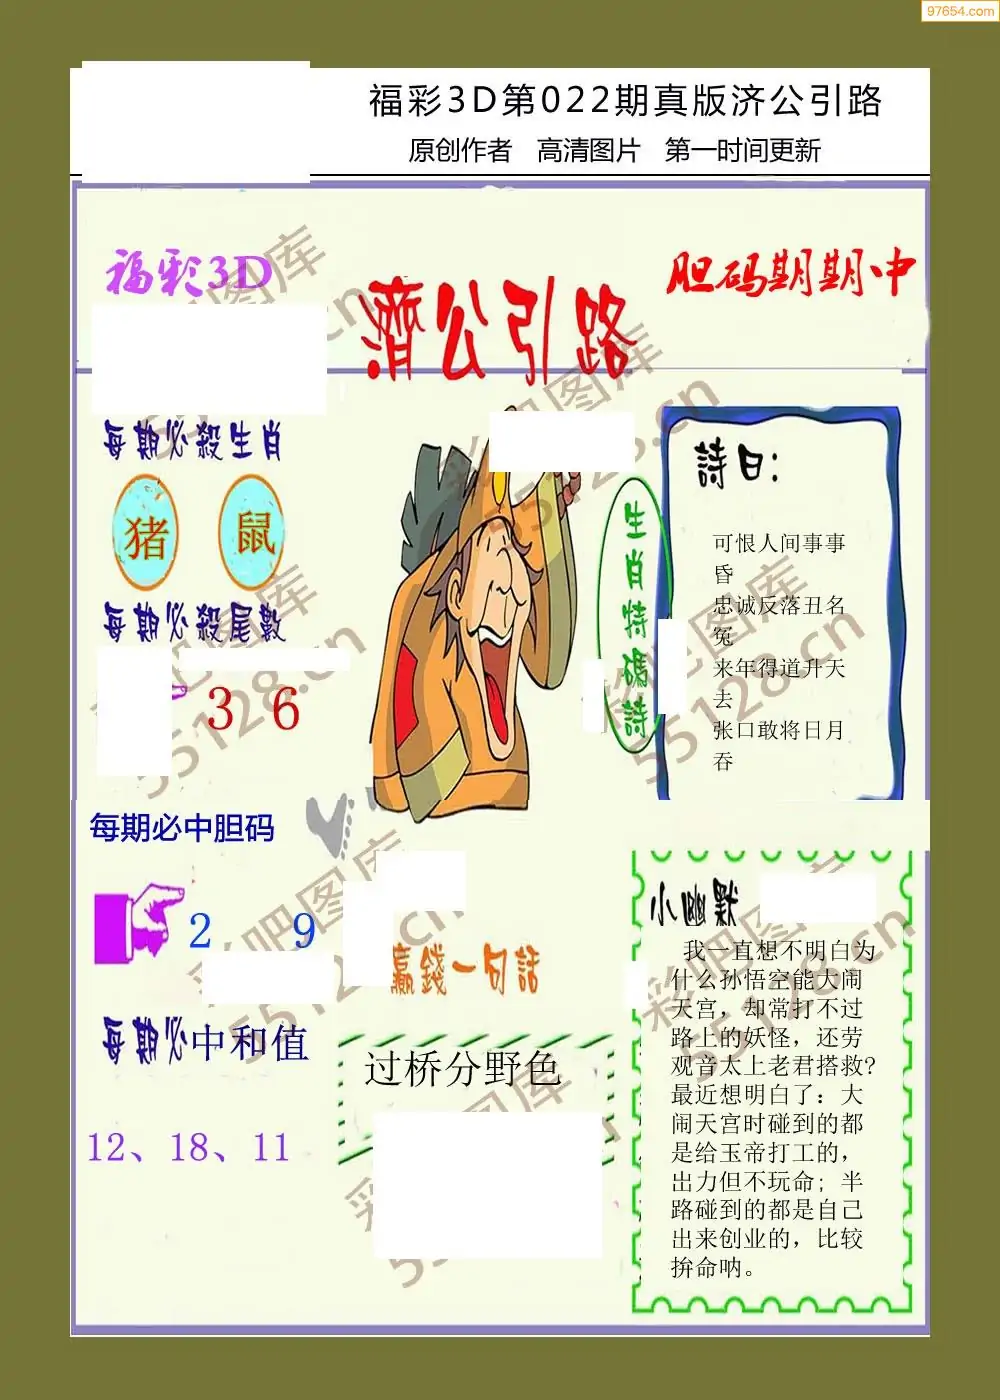 97654.com
福彩3D第022期真版济公引路
原创作者 高清图片 第一时间更新
福彩3D
濟公引路
胆码期期中
每期必殺生肖
猪 鼠
每期必殺尾數
3 6
生肖特碼詩
詩曰：
可恨人间事事
昏
忠诚反落丑名
冤
来年得道升天
去
张口敢将日月
吞
每期必中胆码
2 9
每期必中和值
12、18、11
贏錢一句話
过桥分野色
小幽默
我一直想不明白为
什么孙悟空能大闹
天宫，却常打不过
路上的妖怪，还劳
观音太上老君搭救?
最近想明白了：大
闹天宫时碰到的都
是给玉帝打工的，
出力但不玩命；半
路碰到的都是自己
出来创业的，比较
拚命呐。
彩吧图库
55128.cn